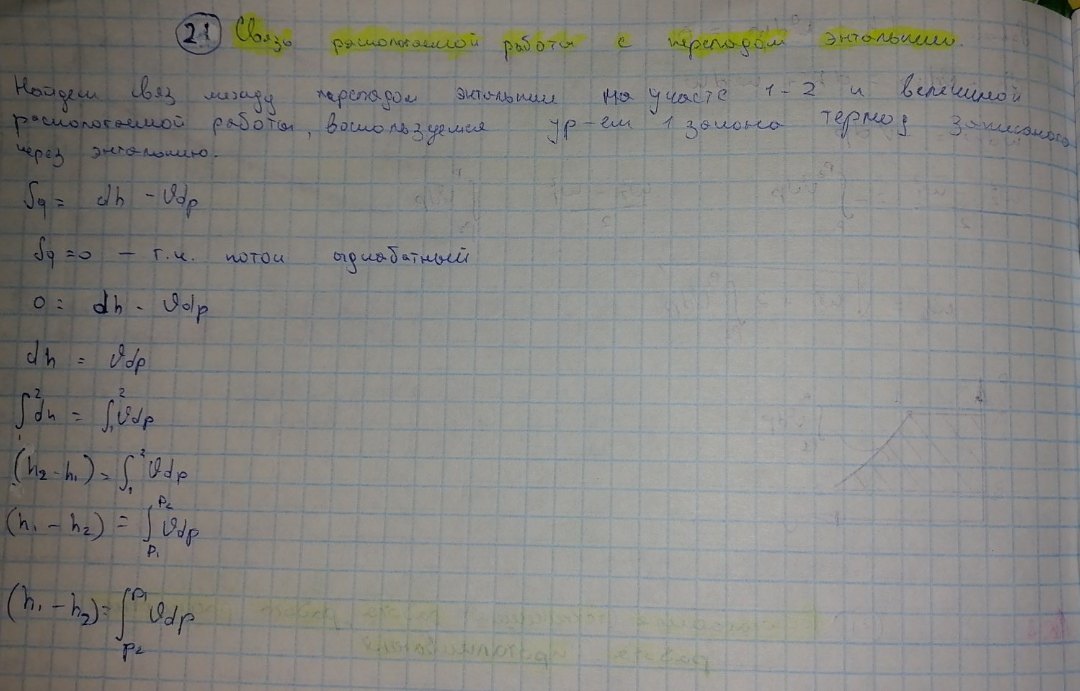 21 Связь распологаемой работы с перепадом энтальпии.
Найдем связ между перепадом энтальпии на участе 1-2 и величиной
располагаемой работы, воспользуемся ур-ем 1 закона термод записаного
через энтальпию.
δq = dh - ϑdp
δq = 0 — т.к. поток адиабатный
0 = dh - ϑdp
dh = ϑdp
∫₁² dh = ∫₁² ϑdp
(h₂ - h₁) = ∫₁² ϑdp
(h₁ - h₂) = ∫_{P₁}^{P₂} ϑdp
(h₁ - h₂) = ∫_{P₂}^{P₁} ϑdp